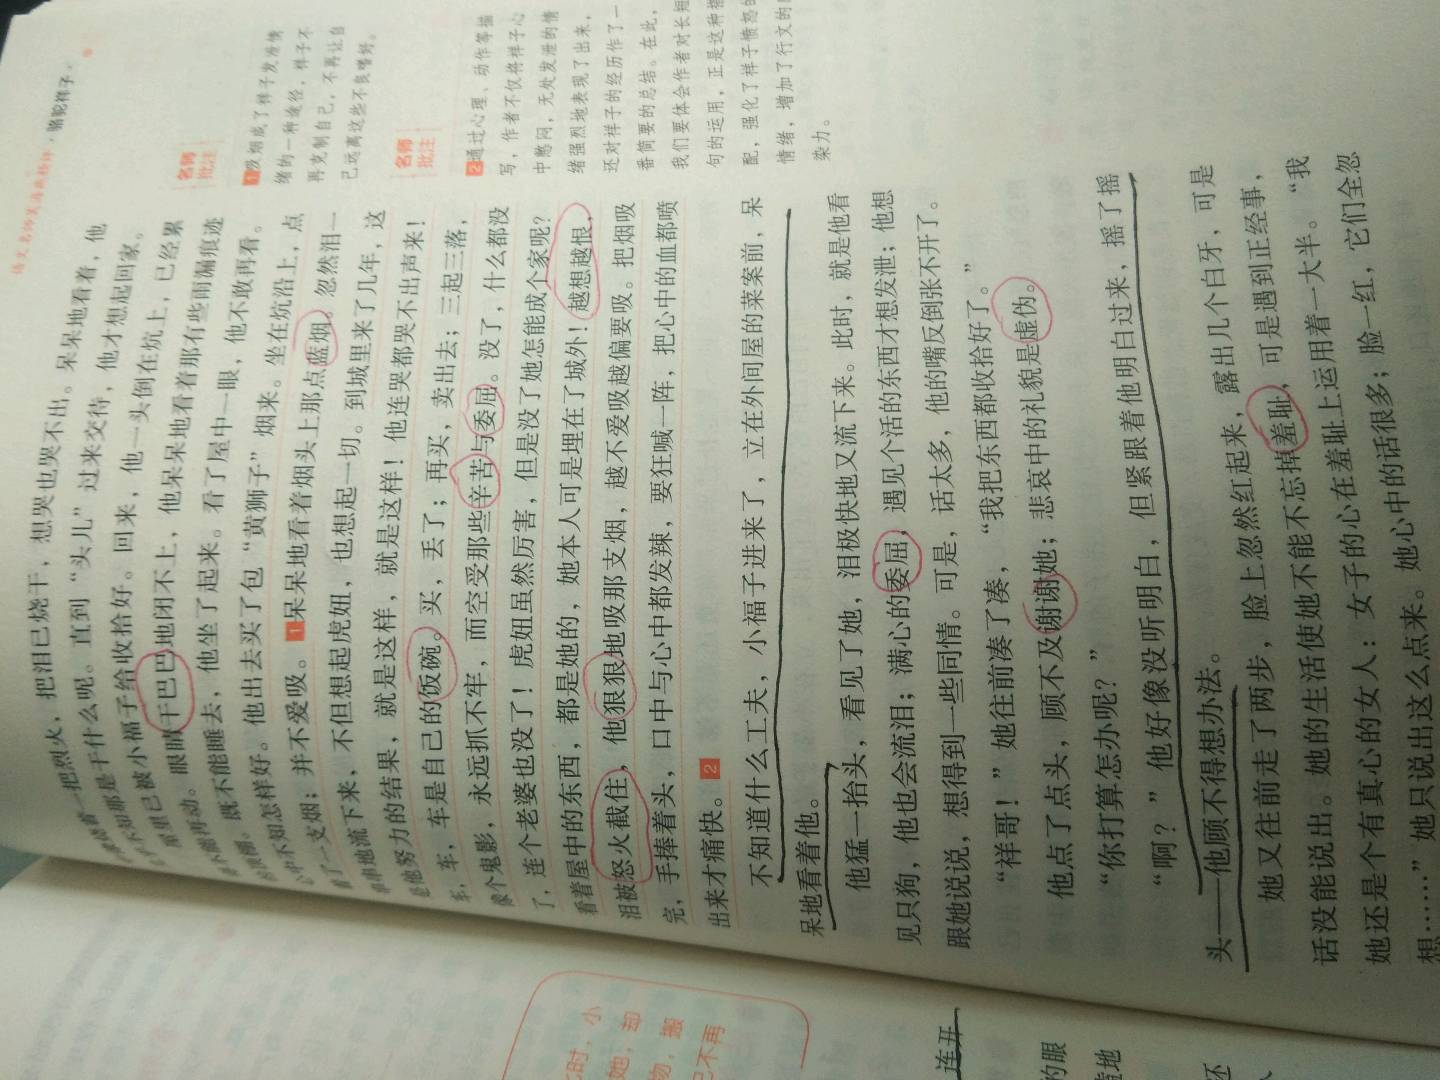 语文名师美读成精神·骆驼祥子·
把烈火，把泪已烧干，想哭也哭不出。呆呆地看着，他
不知那是干什么呢。直到“头儿”过来交待，他才想起回家。
屋里已被小福子给收拾好。回来，他一头倒在炕上，已经累
得不能再动。眼睛干巴巴地闭不上，他呆呆地看着那有些雨漏痕迹
的顶棚。既不能睡去，他坐了起来。看了屋中一眼，他不敢再看。
心中不知怎样好。他出去买了包“黄狮子”烟来。坐在炕沿上，点
着了一支烟；并不爱吸。1呆呆地看着烟头上那点蓝烟。忽然泪一
串串地流下来，不但想起虎妞，也想起一切。到城里来了几年，这
是他努力的结果，就是这样，就是这样！他连哭都哭不出声来！
车，车，车是自己的饭碗。买，丢了；再买，卖出去；三起三落，
像个鬼影，永远抓不牢，而空受那些辛苦与委屈。没了，什么都没
了，连个老婆也没了！虎妞虽然厉害，但是没了她怎能成个家呢？
看着屋中的东西，都是她的，她本人可是埋在了城外！越想越恨，
泪被怒火截住，他狠狠地吸那支烟，越不爱吸越偏要吸。把烟吸
完，手捧着头，口中与心中都发辣，要狂喊一阵，把心中的血都喷
出来才痛快。2
不知道什么工夫，小福子进来了，立在外间屋的菜案前，呆
呆地看着他。
他猛一抬头，看见了她，泪极快地又流下来。此时，就是他看
见只狗，他也会流泪；满心的委屈，遇见个活的东西才想发泄；他想
跟她说说，想得到一些同情。可是，话太多，他的嘴反倒张不开了。
“祥哥！”她往前凑了凑，“我把东西都收拾好了。”
他点了点头，顾不及谢谢她；悲哀中的礼貌是虚伪。
“你打算怎办呢？”
“啊？”他好像没听明白，但紧跟着他明白过来，摇了摇
头——他顾不得想办法。
她又往前走了两步，脸上忽然红起来，露出几个白牙，可是
话没能说出。她的生活使她不能不忘掉羞耻，可是遇到正经事，
她还是个有真心的女人：女子的心在羞耻上运用着一大半。“我
想……”她只说出这么点来。她心中的话很多；脸一红，它们全忽
名师
批注
1吸烟成了祥子发泄情
绪的一种途径，祥子不
再克制自己，不再让自
己远离这些不良嗜好。
名师
批注
2通过心理、动作等描
写，作者不仅将祥子心
中憋闷，无处发泄的情
绪强烈地表现了出来，
还对祥子的经历作了一
番简要的总结。在此，
我们要体会作者对长短
句的运用，正是这种搭
配，强化了祥子愤怒的
情绪，增加了行文的
染力。
时，小
她，却
物，搬
己不再
连开
的眼
地
还